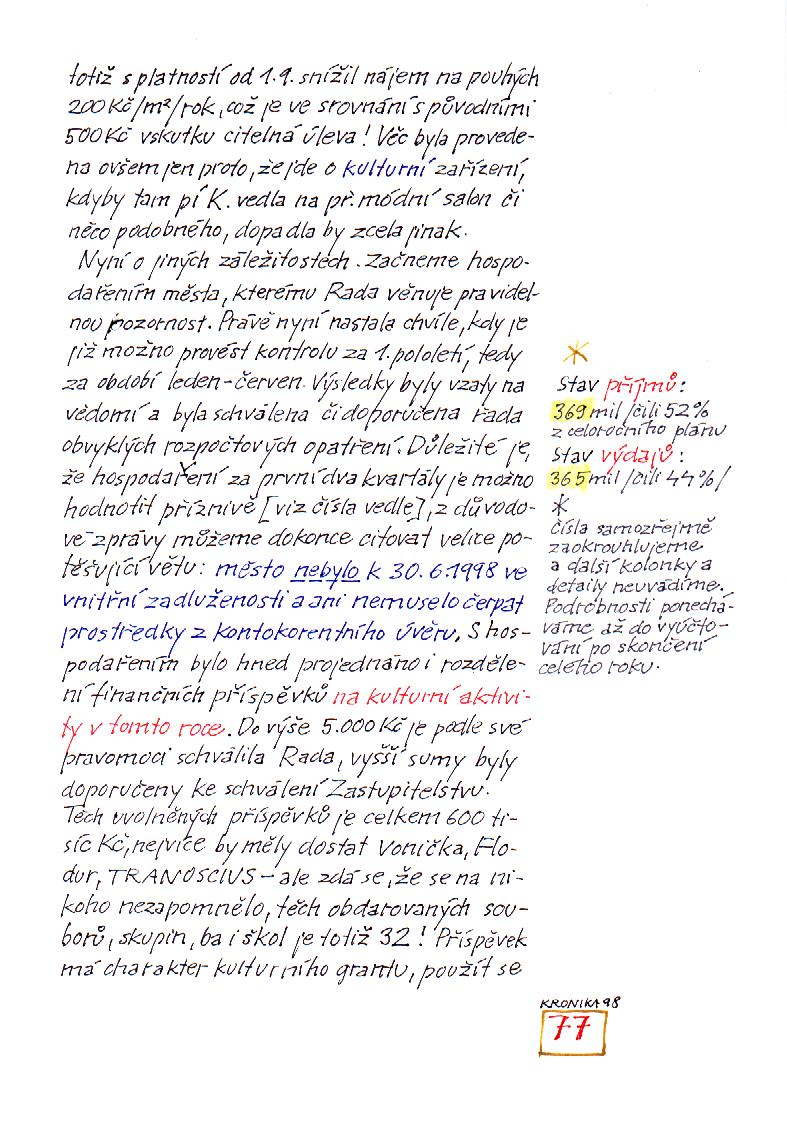 totiž s platností od 1.9. snížil nájem na pouhých
200 Kč/m²/rok, což je ve srovnání s původními
500 Kč vskutku citelná úleva! Věc byla provede-
na ovšem jen proto, že jde o kulturní zařízení,
kdyby tam pí K. vedla na př. módní salon či
něco podobného, dopadla by zcela jinak.
Nyní o jiných záležitostech. Začneme hospo-
dařením města, kterému Rada věnuje pravidel-
nou pozornost. Právě nyní nastala chvíle, kdy je
již možno provést kontrolu za 1. pololetí, tedy
za období leden-červen. Výsledky byly vzaty na
vědomí a byla schválena či doporučena řada
obvyklých rozpočtových opatření. Důležité je,
že hospodaření za první dva kvartály je možno
hodnotit příznivě [viz čísla vedle], z důvodo-
vé zprávy můžeme dokonce citovat velice po-
těšující větu: město nebylo k 30.6.1998 ve
vnitřní zadluženosti a ani nemuselo čerpat
prostředky z kontokorentního úvěru. S hos-
podařením bylo hned projednáno i rozděle-
ní finančních příspěvků na kulturní aktivi-
ty v tomto roce. Do výše 5.000 Kč je podle své
pravomoci schválila Rada, vyšší sumy byly
doporučeny ke schválení Zastupitelstvu.
Těch uvolněných příspěvků je celkem 600 ti-
síc Kč, nejvíce by měly dostat Vonička, Flo-
dur, TRANOSCIUS - ale zdá se, že se na ni-
koho nezapomnělo, těch obdarovaných sou-
borů, skupin, ba i škol je totiž 32! Příspěvek
má charakter kulturního grantu, použít se
*
Stav příjmů:
369 mil /čili 52%
z celoročního plánu
Stav výdajů:
365 mil /čili 44%/
*
čísla samozřejmě
zaokrouhlujeme
a další kolonky a
detaily neuvádíme.
Podrobnosti ponechá-
váme až do vyúčto-
vání po skončení
celého roku.
KRONIKA 98
77